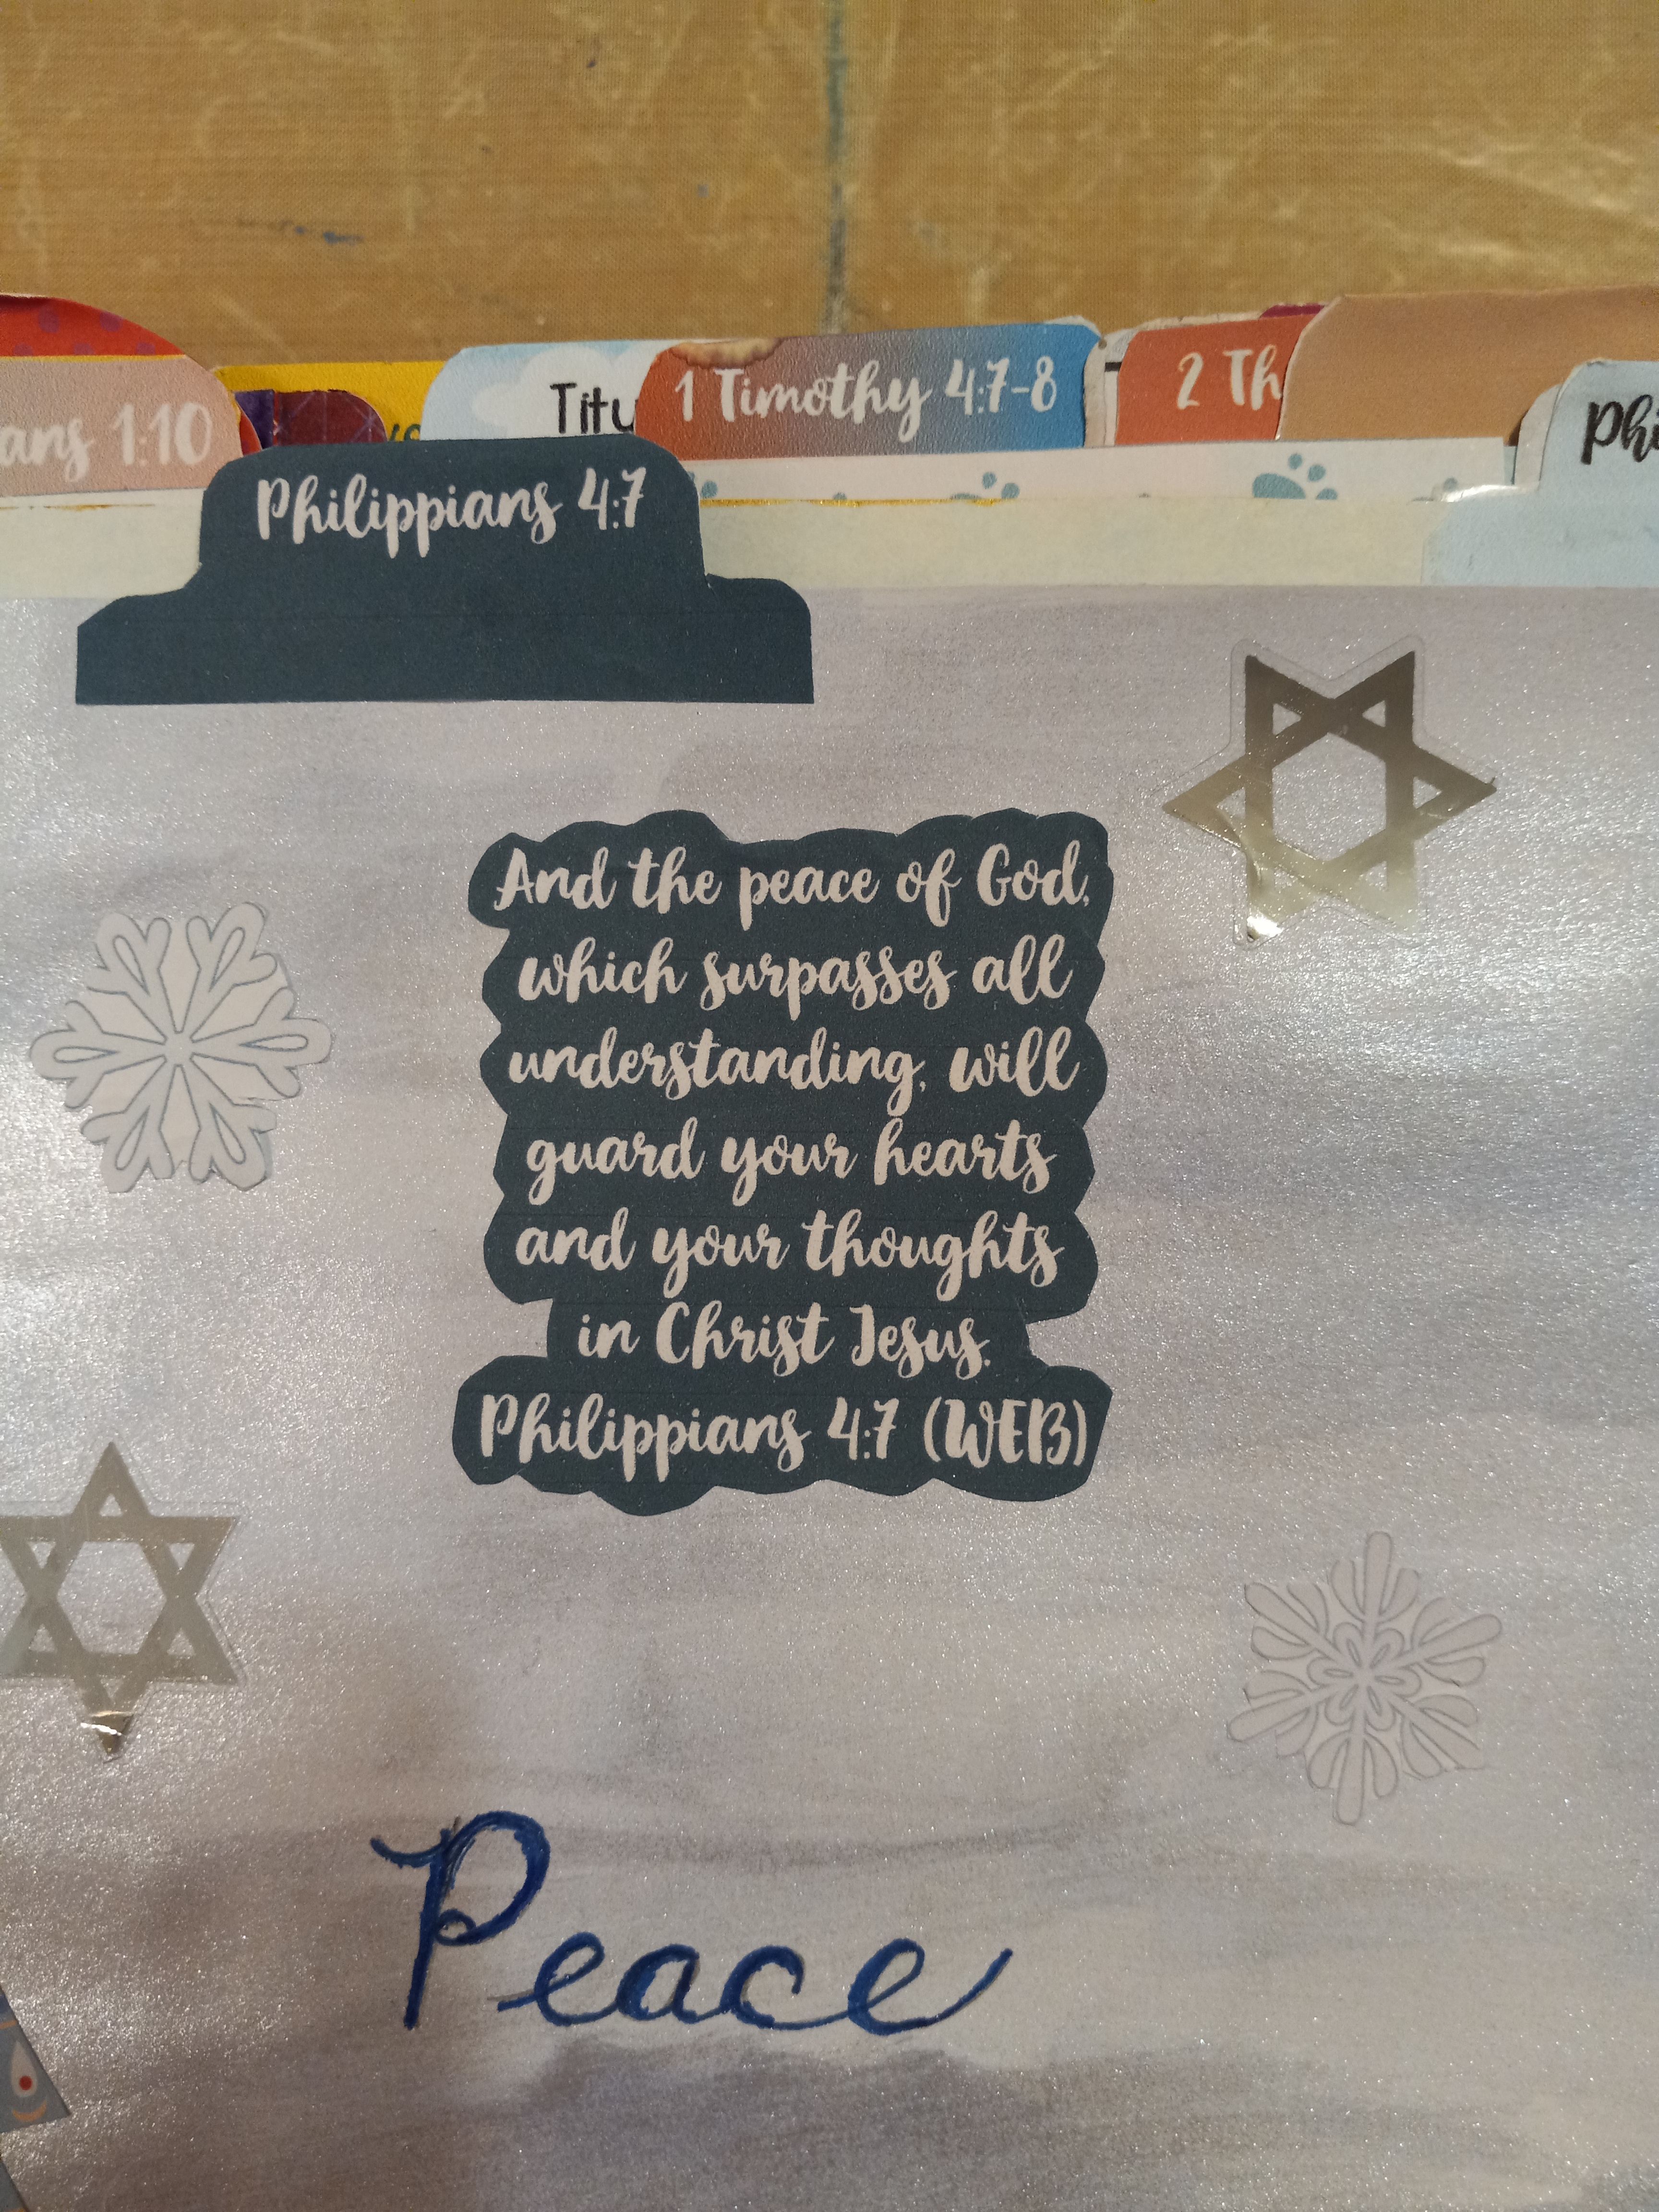 ans 1:10
Titu
1 Timothy 4:7-8
2 Th
Phi
Philippians 4:7
And the peace of God,
which surpasses all
understanding, will
guard your hearts
and your thoughts
in Christ Jesus.
Philippians 4:7 (WEB)
Peace